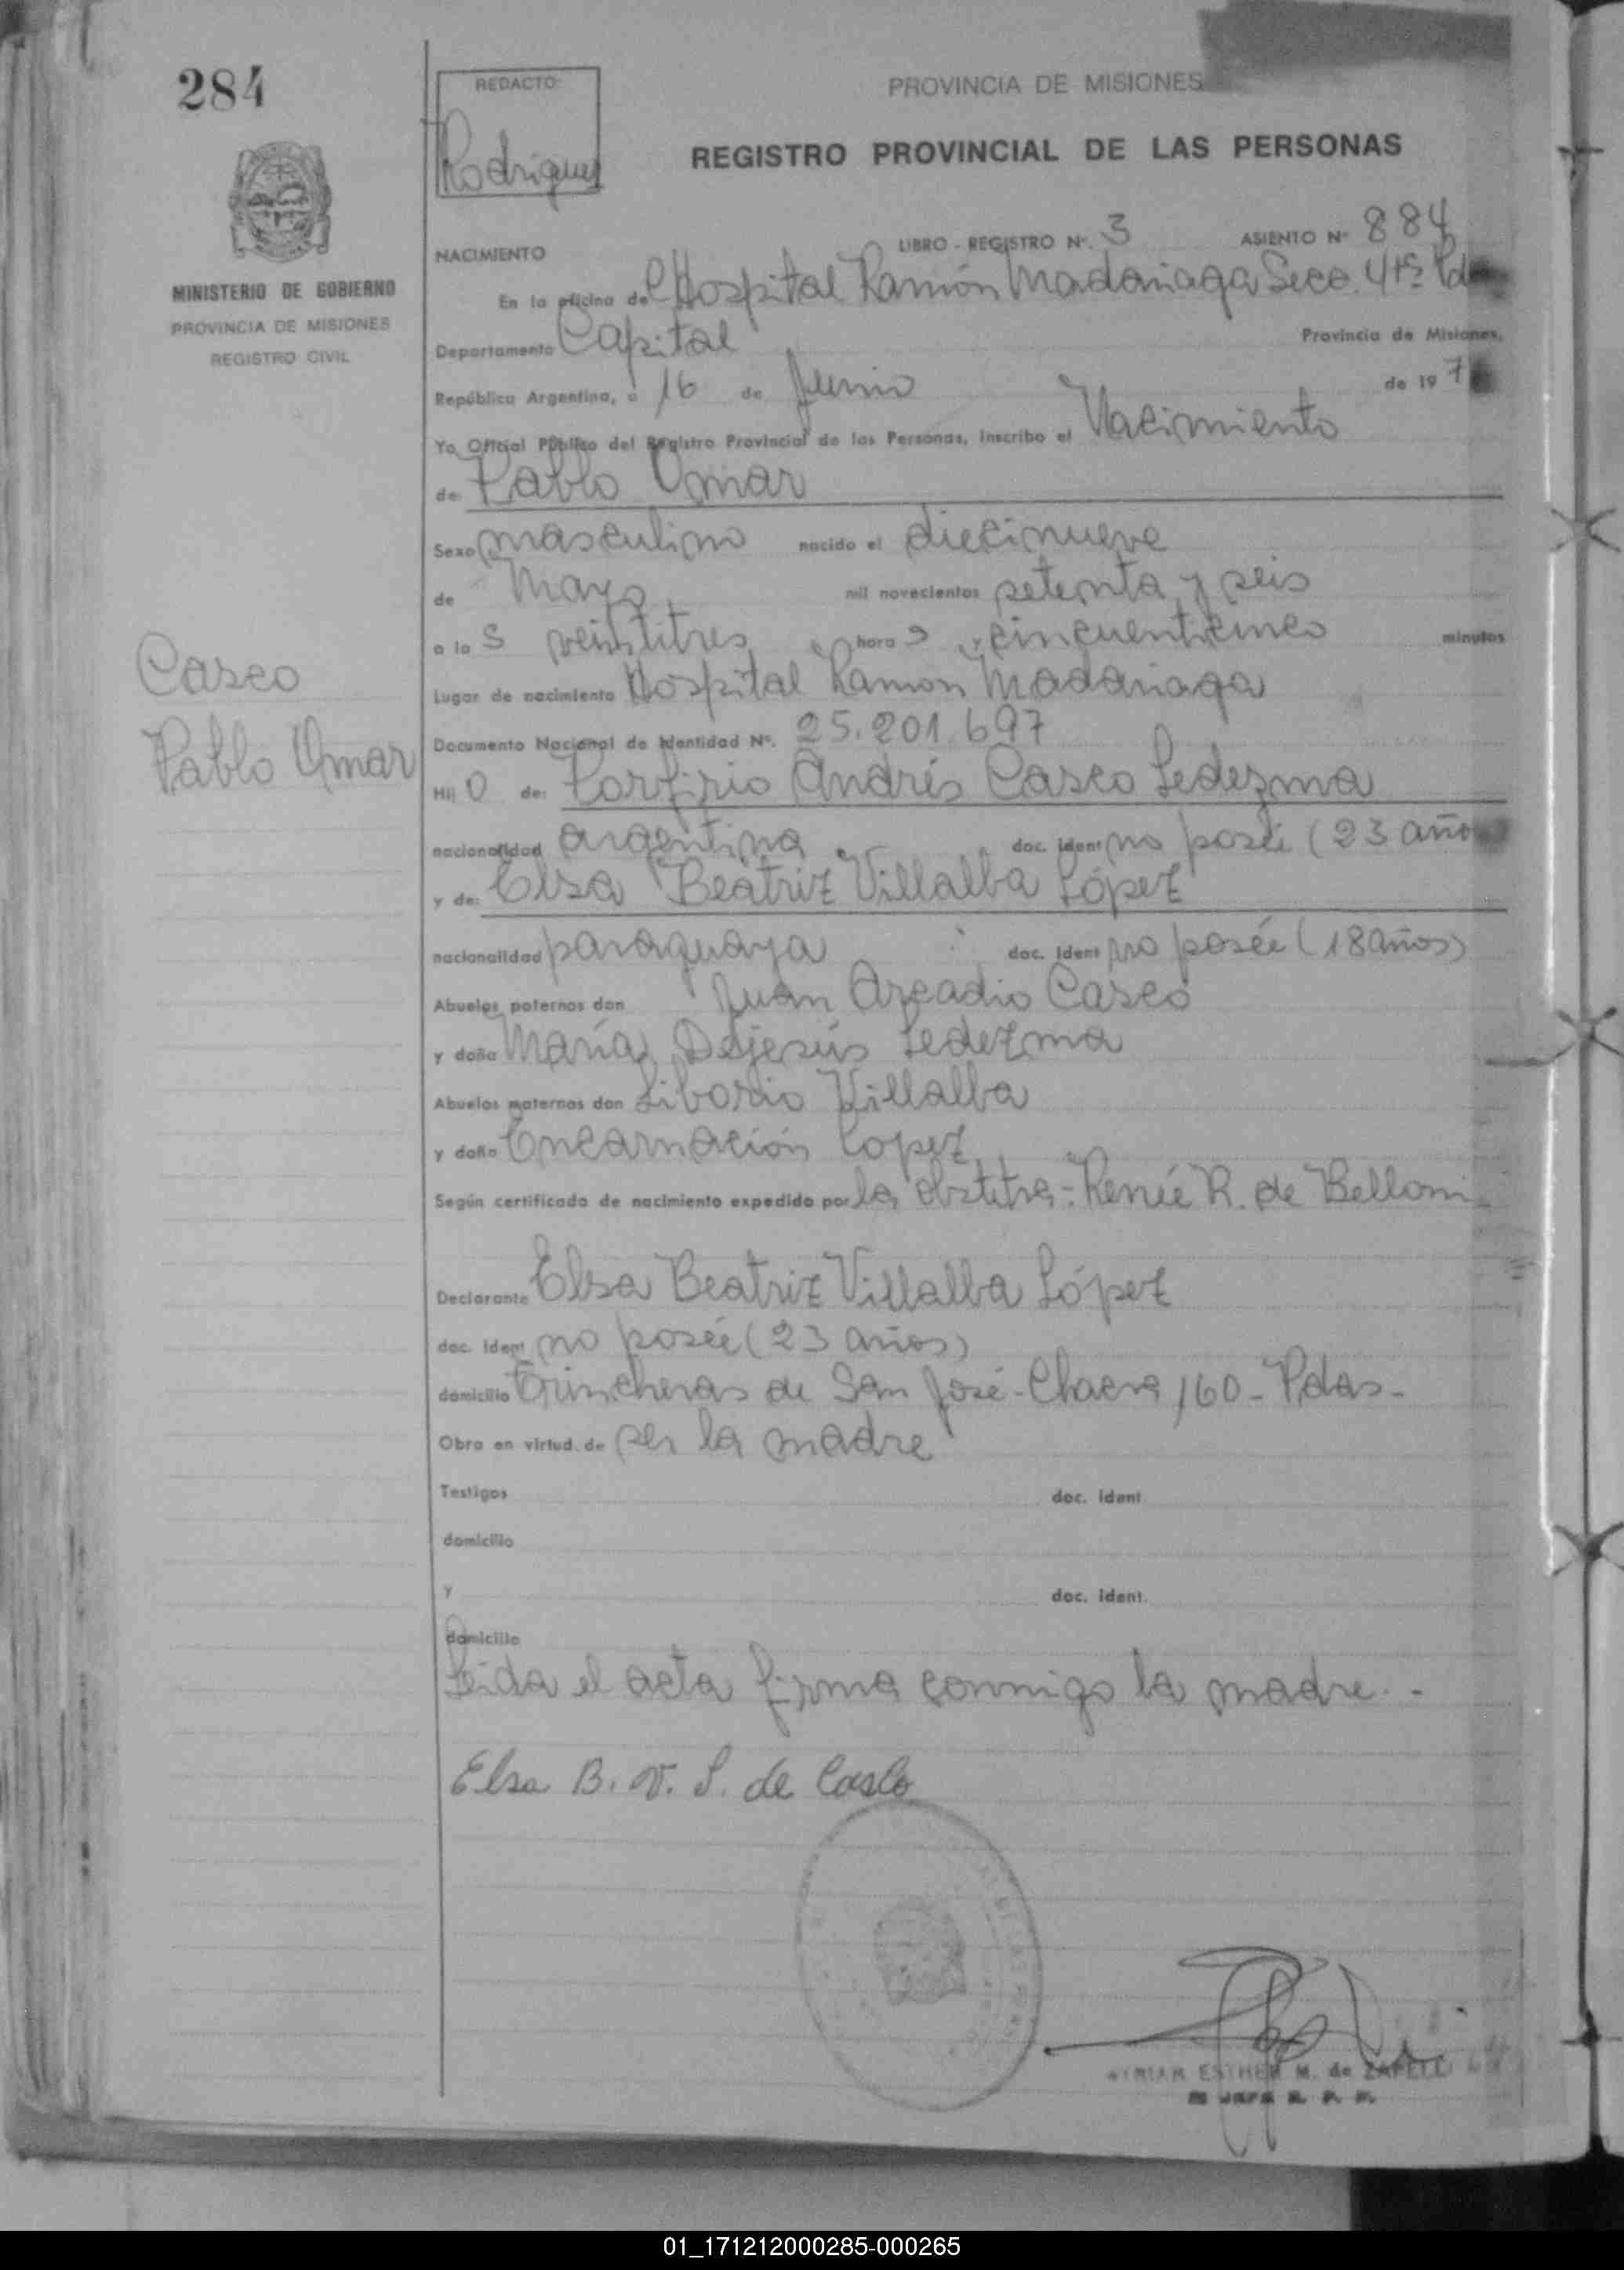 284
REDACTO:
Rodriguez
PROVINCIA DE MISIONES
REGISTRO PROVINCIAL DE LAS PERSONAS
MINISTERIO DE GOBIERNO
PROVINCIA DE MISIONES
REGISTRO CIVIL
NACIMIENTO
LIBRO - REGISTRO Nº. 3 ASIENTO Nº 884
En la oficina del Hospital Ramón Madariaga Secc. 4ta
Departamento Capital Provincia de Misiones,
República Argentina, a 16 de Junio de 197
Yo, Oficial Público del Registro Provincial de las Personas, inscribo el Nacimiento
de Pablo Omar
Sexo masculino nacido el diecinueve
de Mayo mil novecientos setenta y seis
a las veintitres horas y cincuenticinco minutos
Lugar de nacimiento Hospital Ramon Madariaga
Casco
Pablo Omar
Documento Nacional de Identidad Nº. 25.201.697
Hijo de: Porfirio Andrés Casco Ledezma
nacionalidad argentina doc. ident no posée (23 años
y de: Elsa Beatriz Villalba López
nacionalidad paraguaya doc. ident no posée (18 años)
Abuelos paternos don Juan Arcadio Casco
y doña María Dejesús Ledezma
Abuelos maternos don Liborio Villalba
y doña Encarnación Lopez
Según certificado de nacimiento expedido por la obstetra: Renée R. de Belloni
Declarante Elsa Beatriz Villalba López
doc. ident no posée (23 años)
domicilio Trincheras de San José - Chacra 160 - Pdas -
Obra en virtud de ser la madre
Testigos doc. ident
domicilio
y doc. ident.
domicilio
Leida el acta firma conmigo la madre. -
Elsa B. V. L. de Casco
ESTHER M. de
01_171212000285-000265